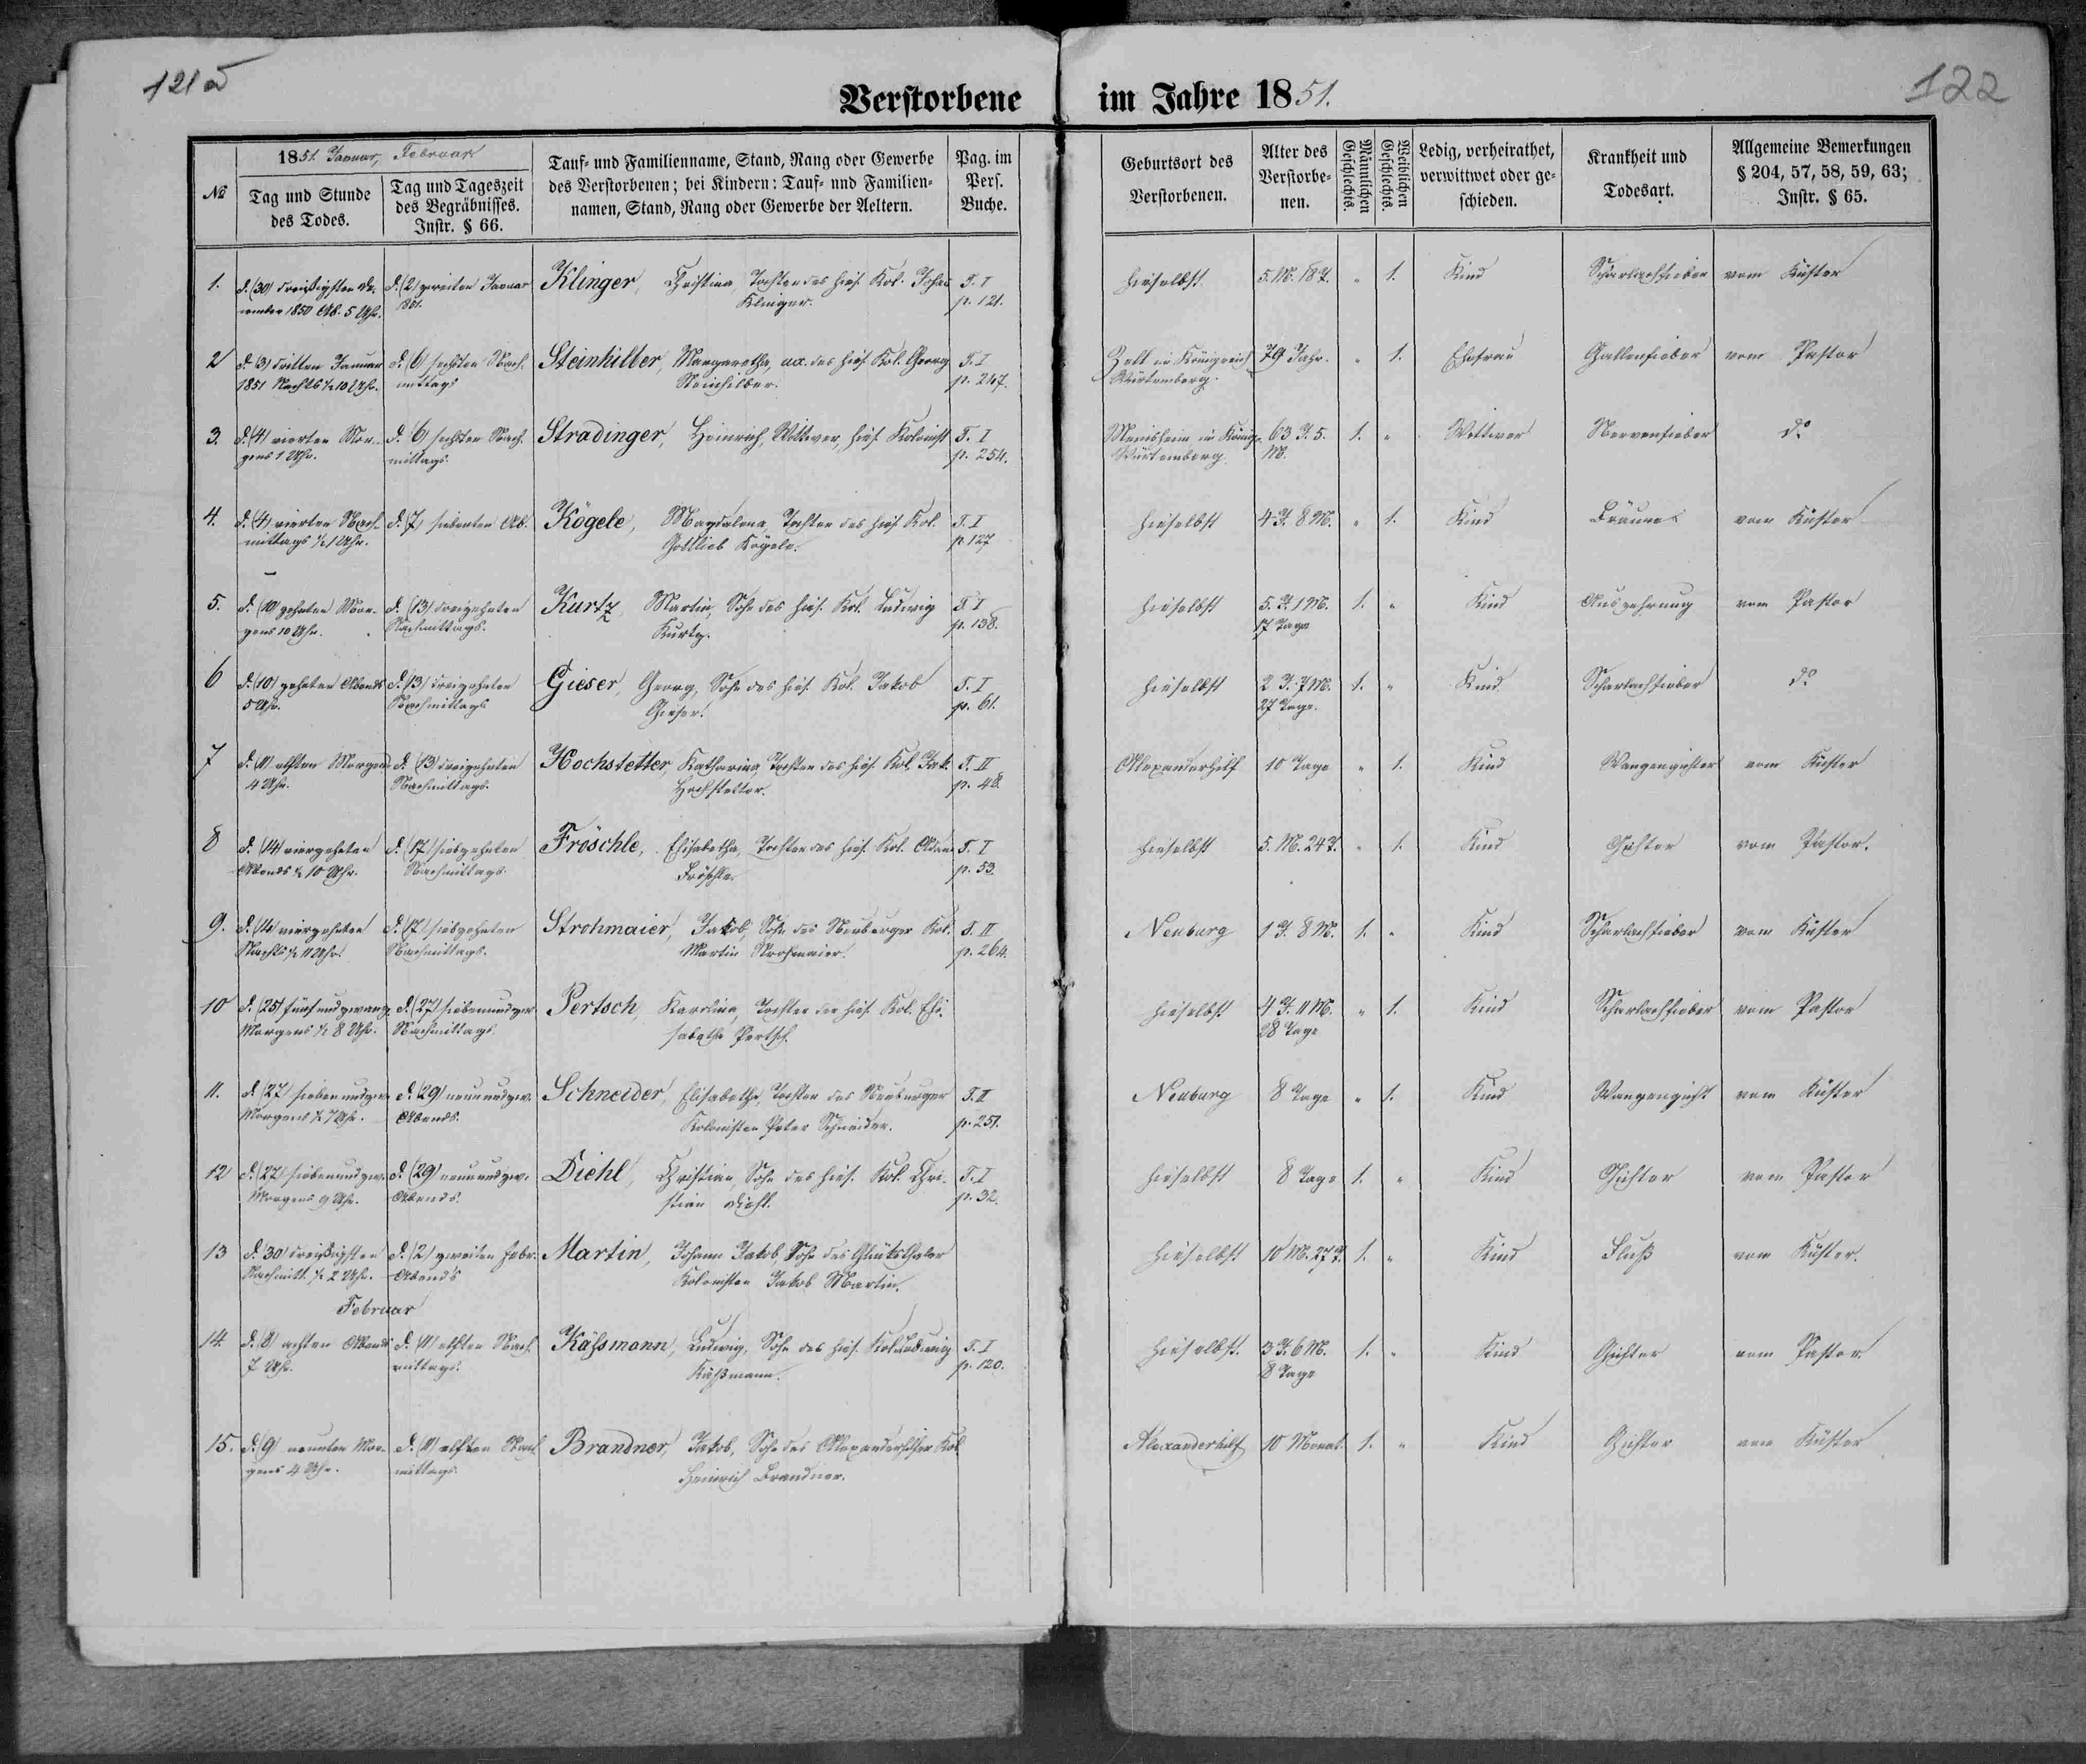 121 a
122
Verstorbene im Jahre 1851.
1851. Januar, Februar
№
Tag und Stunde des Todes.
Tag und Tageszeit des Begräbnisses. Instr. § 66.
Tauf- und Familienname, Stand, Rang oder Gewerbe des Verstorbenen; bei Kindern: Tauf- und Familiennamen, Stand, Rang oder Gewerbe der Aeltern.
Pag. im Pers. Buche.
Geburtsort des Verstorbenen.
Alter des Verstorbenen.
Männlichen Geschlechts.
Weiblichen Geschlechts.
Ledig, verheirathet, verwittwet oder geschieden.
Krankheit und Todesart.
Allgemeine Bemerkungen § 204, 57, 58, 59, 63; Instr. § 65.
1. d. (30) dreißigsten De- d. (2) zweiten Januar Klinger, Christina, Tochter des hies. Kol. T. I hieselbst 5. M. 18 T. " 1. Kind Scharlachfieber vom Küster
cember 1850 Ab. 5 Uhr. 1851. Klinger. p. 121.
2 d. (3) dritten Januar d. (6) sechsten Nach- Steinhilber, Margaretha, ux. des hies. Kol. Georg T. I Zell in Königreich 79 Jahr. " 1. Ehefrau Gallenfieber vom Pastor
1851 Nachts ½ 10 Uhr. mittags Steinhilber. p. 247. Würtemberg.
3. d. (4) vierten Mor- d. (6) sechsten Nach- Stradinger, Heinrich, Wittwer, hies. Kolonist T. I in König. 63 J. 5. 1. " Wittwer Nervenfieber do
gens 1 Uhr. mittags. p. 254. Würtemberg M.
4. d. (4) vierten Nach- d. (7) siebenten Ab. Kögele, Magdalena, Tochter des hies. Kol. T. I hieselbst 4 J. 8 M. " 1. Kind Bräune vom Küster
mittags ½ 1 Uhr. Gottlieb Kögele. p. 127
5. d. (10) zehnten Mor- d. (13) dreizehnten Kurtz, Martin, Sohn des hies. Kol. Ludwig T. I hieselbst 5. J. 1 M. 1. " Kind Auszehrung vom Pastor
gens 10 Uhr. Nachmittags. Kurtz. p. 138. 17 Tage
6 d. (10) zehnten Abends d. (13) dreizehnten Gieser, Georg, Sohn des hies. Kol. Jakob T. I hieselbst 2 J. 7 M. 1. " Kind Scharlachfieber do
5 Uhr. Nachmittags Gieser. p. 61. 27 Tage.
7 d. (11) elften Morgens d. (13) dreizehnten Hochstetter, Katharina, Tochter des hies. Kol. Jak. T. II Alexanderhilf 10 Tage " 1. Kind Wangengichter vom Küster
4 Uhr. Nachmittags. Hochstetter. p. 48.
8 d. (14) vierzehnten d. (17) siebzehnten Fröschle, Elisabetha, Tochter des hies. Kol. Adam T. I hieselbst 5. M. 24 T. " 1. Kind Gichter vom Pastor.
Abends ½ 10 Uhr. Nachmittags. Fröschle. p. 53.
9. d. (14) vierzehnten d. (17) siebzehnten Strohmaier, Jakob, Sohn des Neuburger Kol. T. II Neuburg 1 J. 8 M. 1. " Kind Scharlachfieber vom Küster
Nachts ½ 11 Uhr. Nachmittags. Martin Strohmaier. p. 264.
10 d. (25) fünfundzwanz. d. (27) siebenundzw. Pertsch, Karolina, Tochter der hies. Kol. Eli- hieselbst 4 J. 11 M. " 1. Kind Scharlachfieber vom Pastor
Morgens ½ 8 Uhr. Nachmittags. sabetha Pertsch. 28 Tage
11. d. (27) siebenundzw. d. (29) neunundzw. Schneider, Elisabetha, Tochter des Neuburger T. II Neuburg 8 Tage " 1. Kind Wangengicht vom Küster
Morgens ½ 7 Uhr. Abends. Kolonisten Peter Schneider. p. 251.
12 d. (27) siebenundzw. d. (29) neunundzw. Diehl, Christian, Sohn des hies. Kol. Chri- T. I hieselbst 8 Tage 1. " Kind Gichter vom Pastor
Morgens 9 Uhr. Abends. stian Diehl. p. 32.
13 d. (30) dreißigsten d. (2) zweiten Febr. Martin, Johann Jakob, Sohn des Glüksthaler hieselbst 10 M. 27 T. 1. " Kind Fluß vom Küster.
Nachmitt. ½ 2 Uhr. Abends Kolonisten Jakob Martin.
Februar
14. d. (8) achten Abends d. (11) elften Nach- Käßmann, Ludwig, Sohn des hies. Kol. Ludwig T. I hieselbst. 3 J. 6 M. 1. " Kind Gichter vom Pastor
7 Uhr. mittags. Käßmann. p. 120. 8 Tage
15. d. (9) neunten Mor- d. (11) elften Nach- Brandner, Jakob, Sohn des Alexanderhilfer Kol. Alexanderhilf 10 Monat. 1. " Kind Gichter vom Küster
gens 4 Uhr. mittags. Heinrich Brandner.